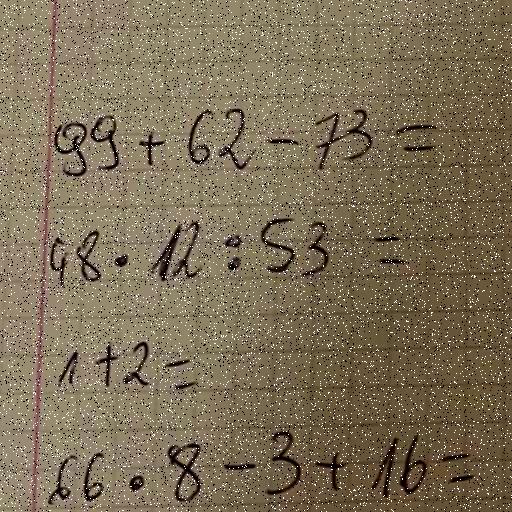 99 + 62 - 73 =
98 · 12 : 53 =
1 + 2 =
66 · 8 - 3 + 16 =